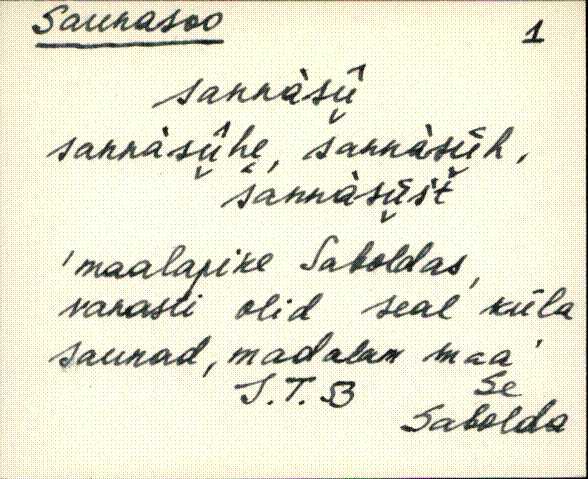 Saunasoo
1
sannàsū̬̂
sannàsū̬̂he̬, sannàsū̬h,
sannàsū̬śt̀
'maalapike Saboldas,
vanasti olid seal küla
saunad, madalam maa'
S.T.B Se
Sabolda